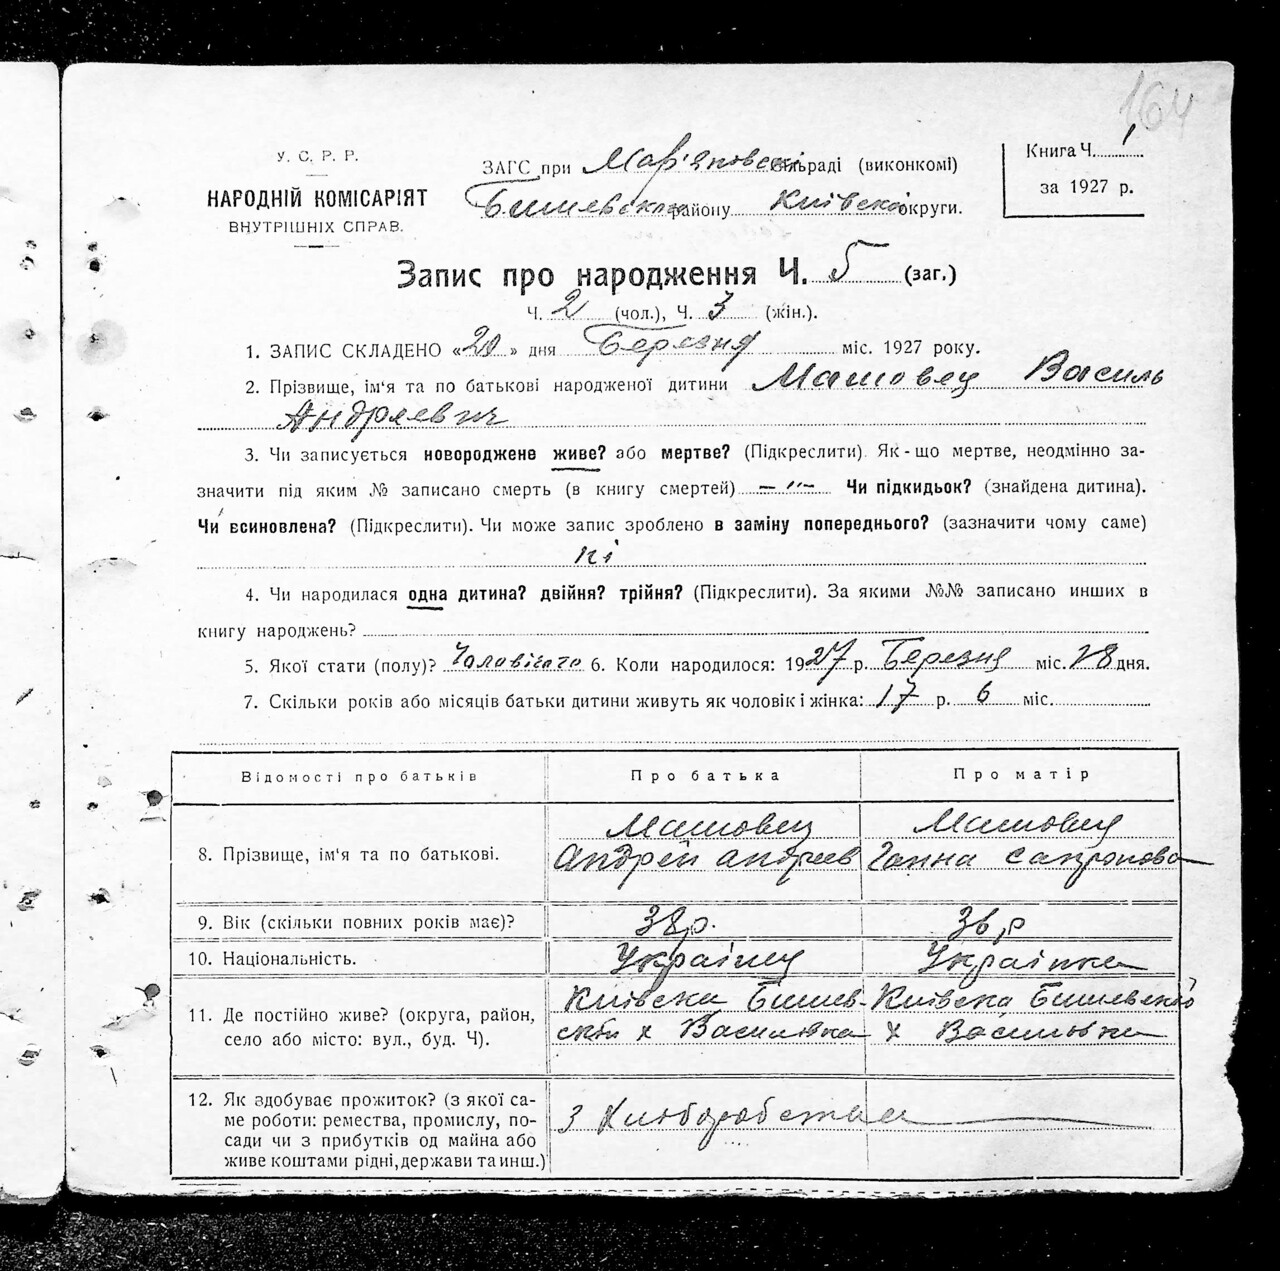 164
У. С. Р. Р.
НАРОДНІЙ КОМІСАРІЯТ
ВНУТРІШНІХ СПРАВ.
ЗАГС при Мар'яновскі сільраді (виконкомі)
Бишевска району Київскої округи.
Книга Ч. 1
за 1927 р.
Запис про народження Ч. 5 (заг.)
Ч. 2 (чол.), Ч. 3 (жін.).
1. ЗАПИС СКЛАДЕНО «20» дня Березня міс. 1927 року.
2. Прізвище, ім'я та по батькові народженої дитини Машовец Василь
Андреевич
3. Чи записується новороджене живе? або мертве? (Підкреслити). Як-що мертве, неодмінно за-
значити під яким № записано смерть (в книгу смертей) —"— Чи підкидьок? (знайдена дитина).
Чи всиновлена? (Підкреслити). Чи може запис зроблено в заміну попереднього? (зазначити чому саме)
ні
4. Чи народилася одна дитина? двійня? трійня? (Підкреслити). За якими №№ записано инших в
книгу народжень?
5. Якої стати (полу)? Чоловічого 6. Коли народилося: 1927 р. Березня міс. 18 дня.
7. Скільки років або місяців батьки дитини живуть як чоловік і жінка: 17 р. 6 міс.
Відомості про батьків
Про батька
Про матір
8. Прізвище, ім'я та по батькові.
Машовец
Андрей Андреев
Машовец
Ганна Сапронова
9. Вік (скільки повних років має)?
38 р.
36 р
10. Національність.
Українц
Українка
11. Де постійно живе? (округа, район,
село або місто: вул., буд. Ч).
Київска Бишев-
скій х Василівка
Київска Бишевской
х Василівка
12. Як здобуває прожиток? (з якої са-
ме роботи: ремества, промислу, по-
сади чи з прибутків од майна або
живе коштами рідні, держави та инш.)
З Хліборобства